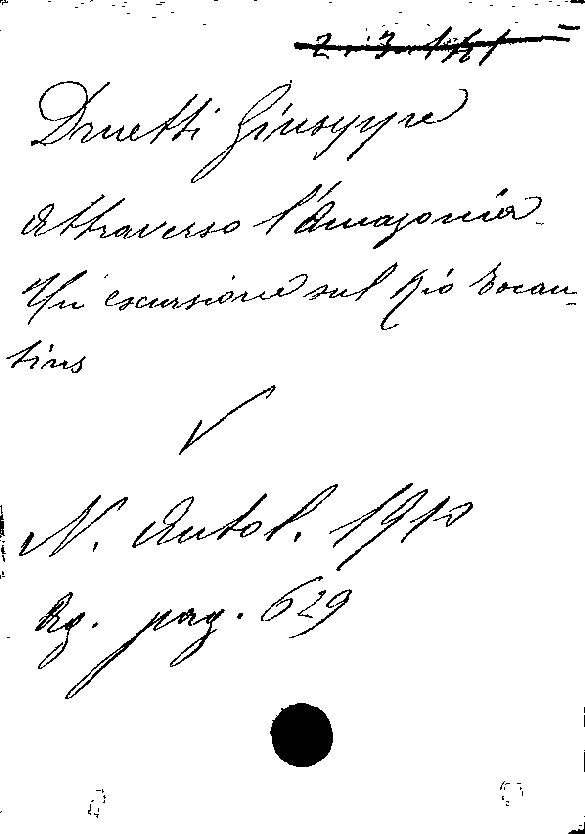 Druetti Giuseppe
Attraverso l'Amazonia
Un escursione sul Rio Tocan-
tins
N. Antol. 1910
Ag. pag. 629